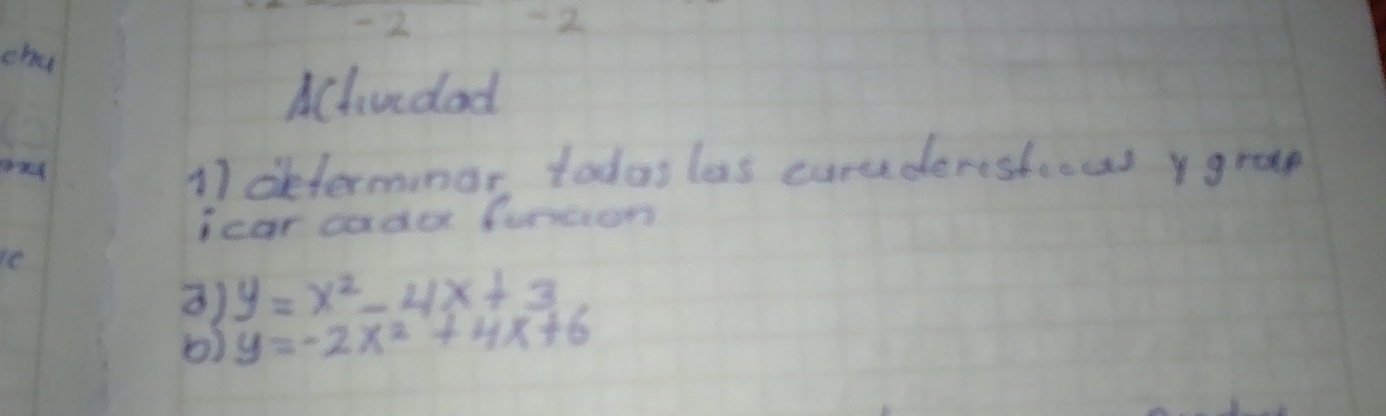 -2 -2
chu
Actividad
1) determinar todas las caracteristicas y graf
icar cada funcion
a) y = x² - 4x + 3
b) y = -2x² + 4x + 6